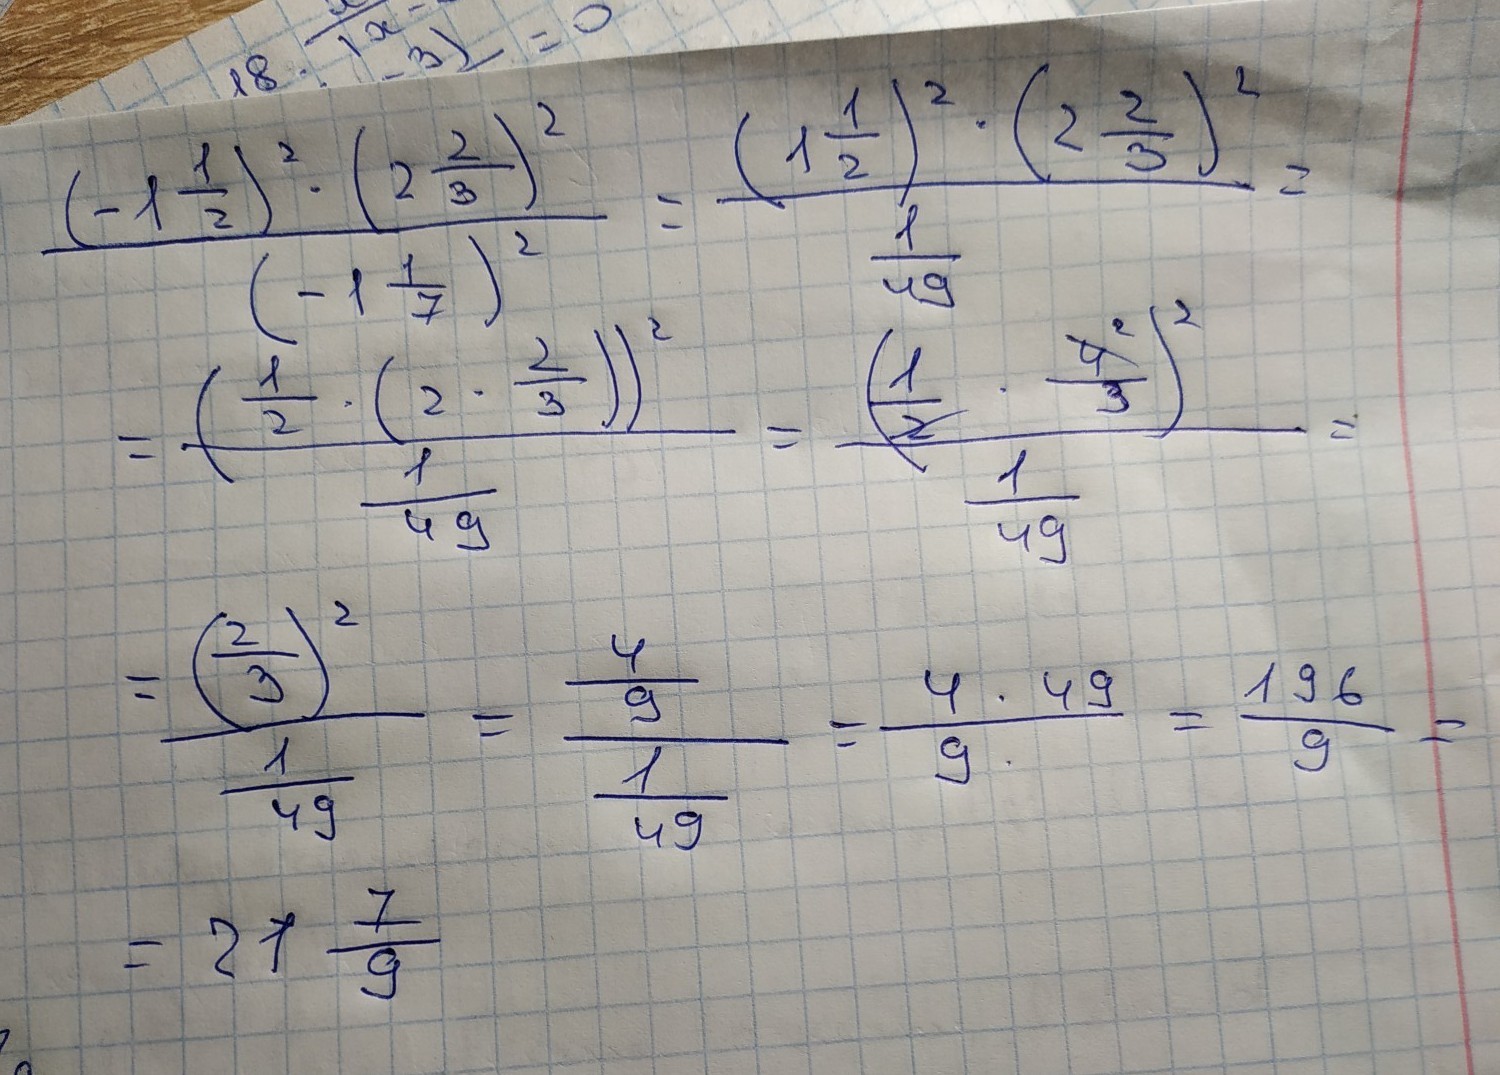 18 · x / (x - 3) = 0
(-1 1/2)² · (2 2/3)² / (-1 1/7)² = (1 1/2)² · (2 2/3)² / (1/49) =
= (1/2 · (2 · 2/3))² / (1/49) = (1/2 · 4²/3)² / (1/49) =
= (2/3)² / (1/49) = (4/9) / (1/49) = 4 · 49 / 9 · = 196/9 =
= 21 7/9